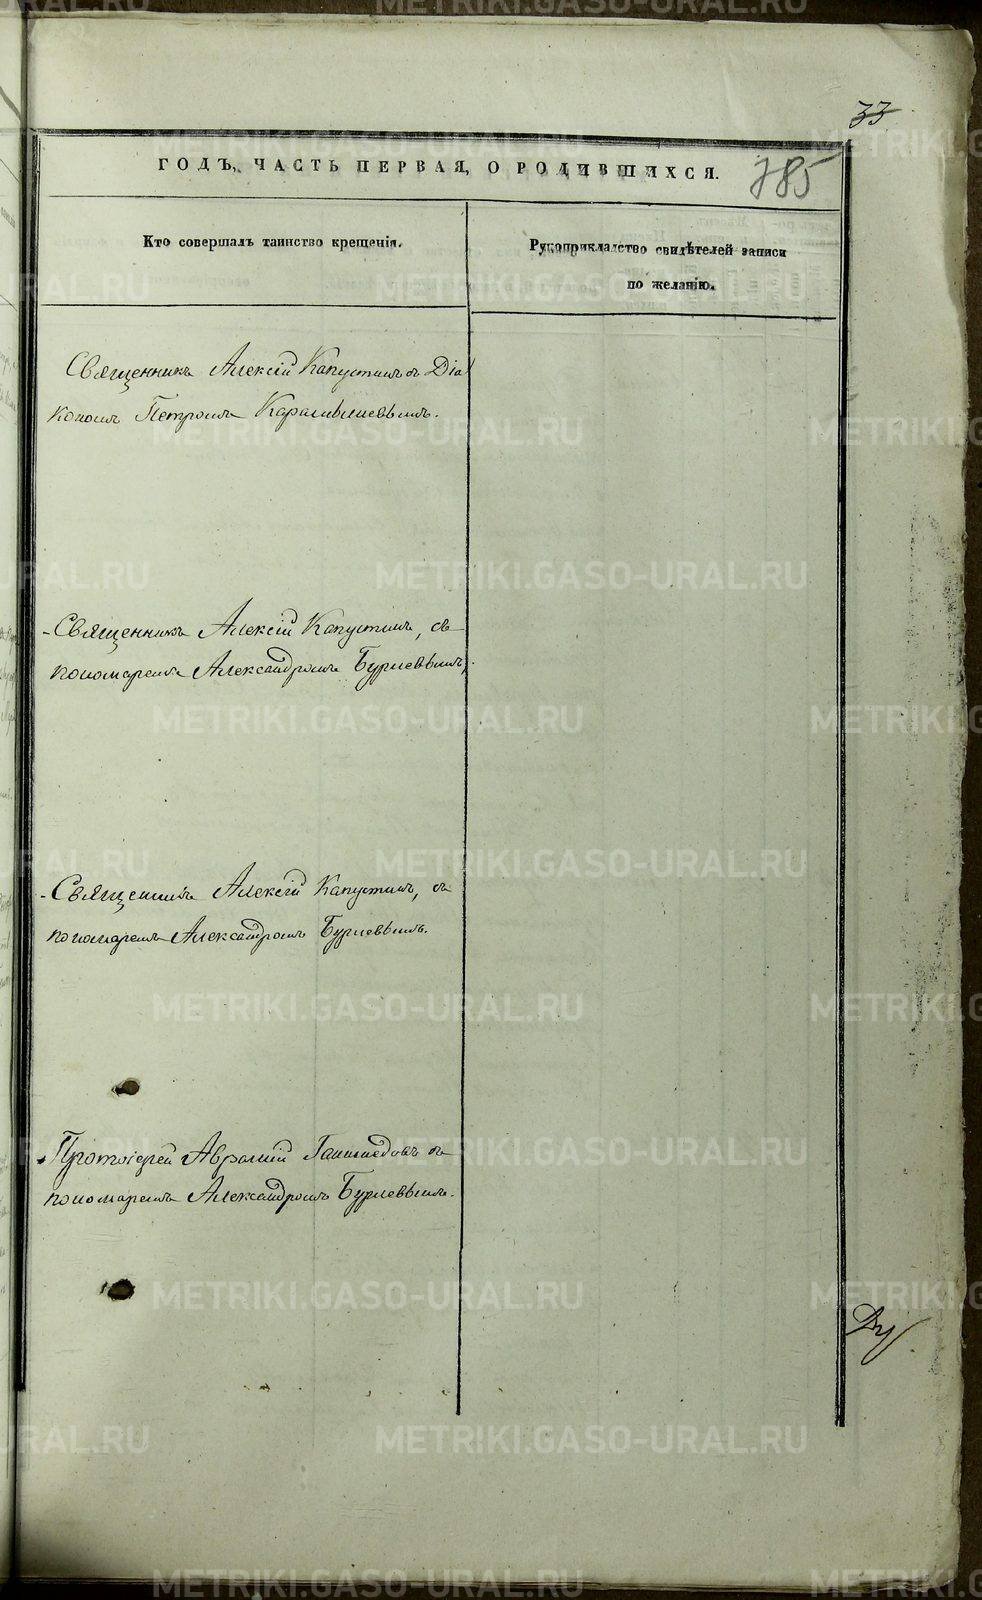 33
ГОДЪ, ЧАСТЬ ПЕРВАЯ, О РОДИВШИХСЯ.
785
Кто совершалъ таинство крещенія.
Рукоприкладство свидѣтелей записи
по желанію.
Священникъ Алексій Капустинъ съ Діа
кономъ Петромъ
Священникъ Алексій Капустинъ, съ
пономаремъ Александромъ Бурневымъ.
Священникъ Алексій Капустинъ, съ
пономаремъ Александромъ Бурневымъ.
Протоіерей Аврамій съ
пономаремъ Александромъ Бурневымъ.
METRIKI.GASO-URAL.RU